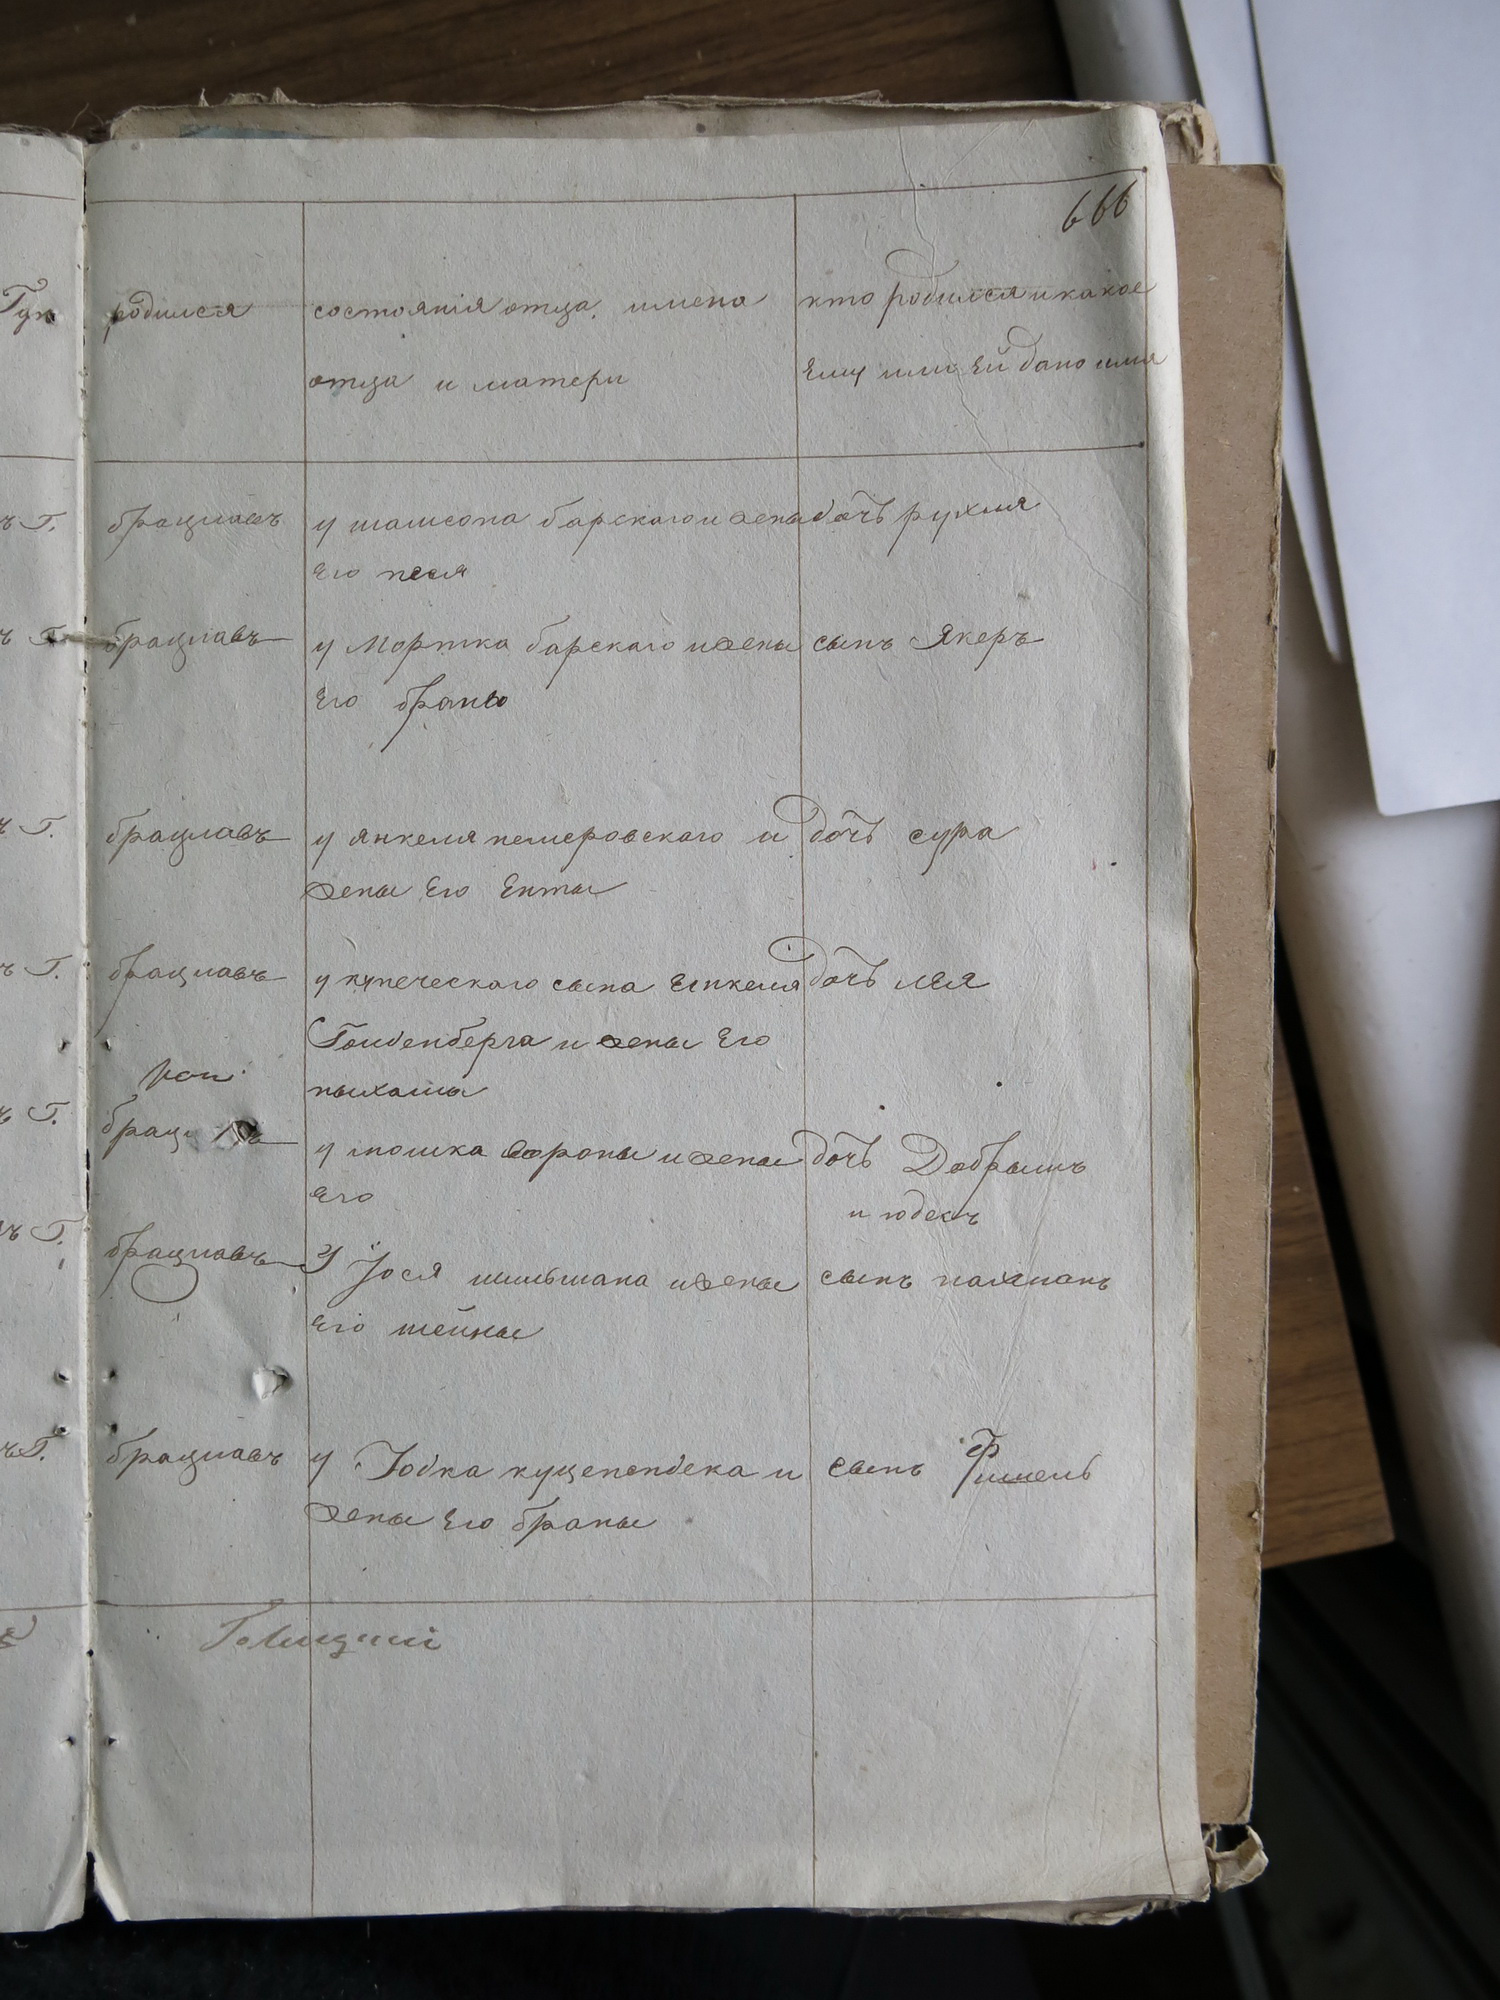 666
родился
состоянія отца, имена
отца и матери
кто родился и какое
ему или ей дано имя
брацлавъ
у шамсона барскаго и жены
его песя
дочь рухля
брацлавъ
у Мортка барскаго и жены
его браны
сынъ Якеръ
брацлавъ
у янкеля немеровскаго и
жены его Енты
дочь сура
брацлавъ
у купеческаго сына
Голденберга и жены его
дочь лея
у мошка вороны и жены
его
дочь Добрышъ
брацлавъ
У Іося шильмана и жены
его шейны
сынъ нахманъ
брацлавъ
у Юдка
жены его браны
сынъ Фишель
Г.
Г.
Г.
Г.
Г.
Г.
Г.